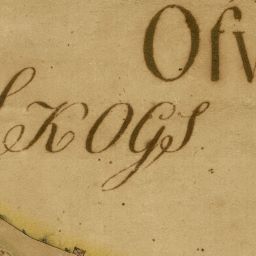 Ofv
SKOGS